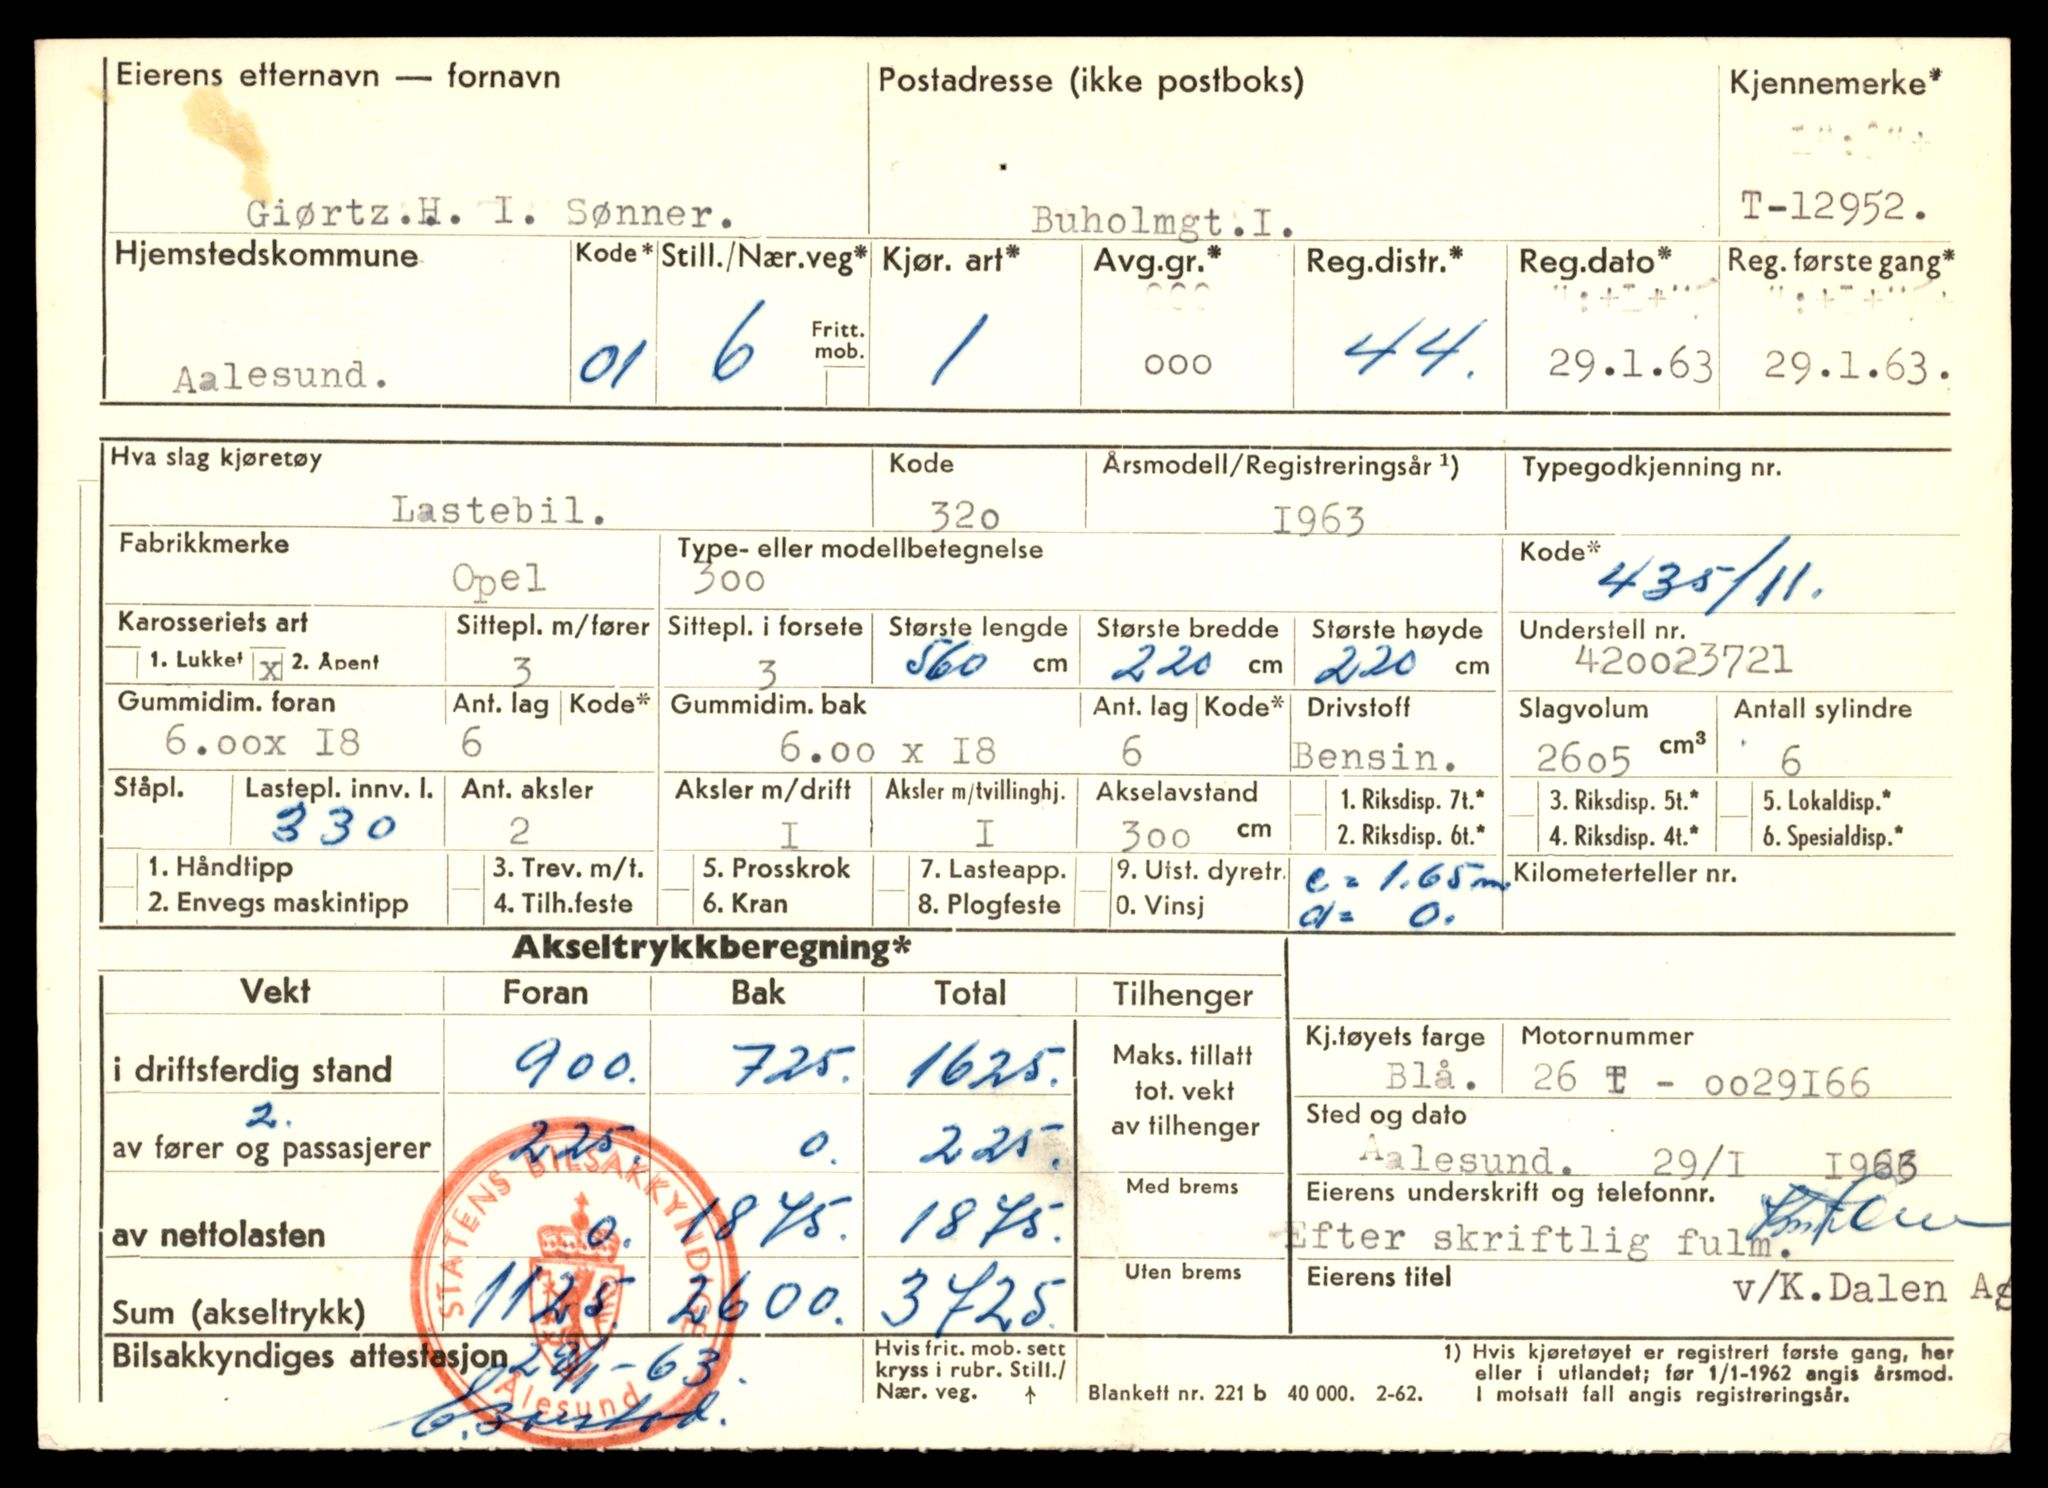 Eierens etternavn — fornavn
Postadresse (ikke postboks)
Kjennemerke*
Giørtz.H. I. Sønner.
Buholmgt.I.
T-12952.
Hjemstedskommune
Kode*
Still./Nær.veg*
Kjør. art*
Avg.gr.*
Reg.distr.*
Reg.dato*
Reg. første gang*
Fritt. mob.
Aalesund.
01
6
1
ooo
44.
29.1.63
29.1.63.
Hva slag kjøretøy
Kode
Årsmodell/Registreringsår ¹)
Typegodkjenning nr.
Lastebil.
32o
I963
Fabrikkmerke
Type- eller modellbetegnelse
Kode*
Opel
3oo
435/11.
Karosseriets art
Sittepl. m/fører
Sittepl. i forsete
Største lengde
Største bredde
Største høyde
Understell nr.
1. Lukket x 2. Åpent
3
3
560 cm
220 cm
220 cm
420023721
Gummidim. foran
Ant. lag
Kode*
Gummidim. bak
Ant. lag
Kode*
Drivstoff
Slagvolum
Antall sylindre
6.oox I8
6
6.oo x I8
6
Bensin.
26o5 cm³
6
Ståpl.
Lastepl. innv. l.
Ant. aksler
Aksler m/drift
Aksler m/tvillinghj.
Akselavstand
1. Riksdisp. 7t.*
3. Riksdisp. 5t.*
5. Lokaldisp.*
330
2
I
I
3oo cm
2. Riksdisp. 6t.*
4. Riksdisp. 4t.*
6. Spesialdisp.*
1. Håndtipp
3. Trev. m/t.
5. Prosskrok
7. Lasteapp.
9. Utst. dyretr.
c = 1.65 m.
Kilometerteller nr.
2. Envegs maskintipp
4. Tilh.feste
6. Kran
8. Plogfeste
0. Vinsj
d = 0.
Akseltrykkberegning*
Vekt
Foran
Bak
Total
Tilhenger
i driftsferdig stand
900.
725.
1625.
Maks. tillatt
tot. vekt
av tilhenger
Kj.tøyets farge
Motornummer
Blå.
26 T - oo29I66
2.
av fører og passasjerer
225.
0.
225.
Sted og dato
Aalesund. 29/I I963
av nettolasten
0.
1875.
1875.
Med brems
Eierens underskrift og telefonnr.
Efter skriftlig fulm.
Sum (akseltrykk)
1125.
2600.
3725.
Uten brems
Eierens titel
v/K.Dalen As
STATENS BILSAKKYNDIGE
Ålesund
Bilsakkyndiges attestasjon
29/1-63.
Hvis frit. mob. sett
kryss i rubr. Still./
Nær. veg. ↑
Blankett nr. 221 b 40 000. 2-62.
1) Hvis kjøretøyet er registrert første gang, her
eller i utlandet; før 1/1-1962 angis årsmod.
I motsatt fall angis registreringsår.